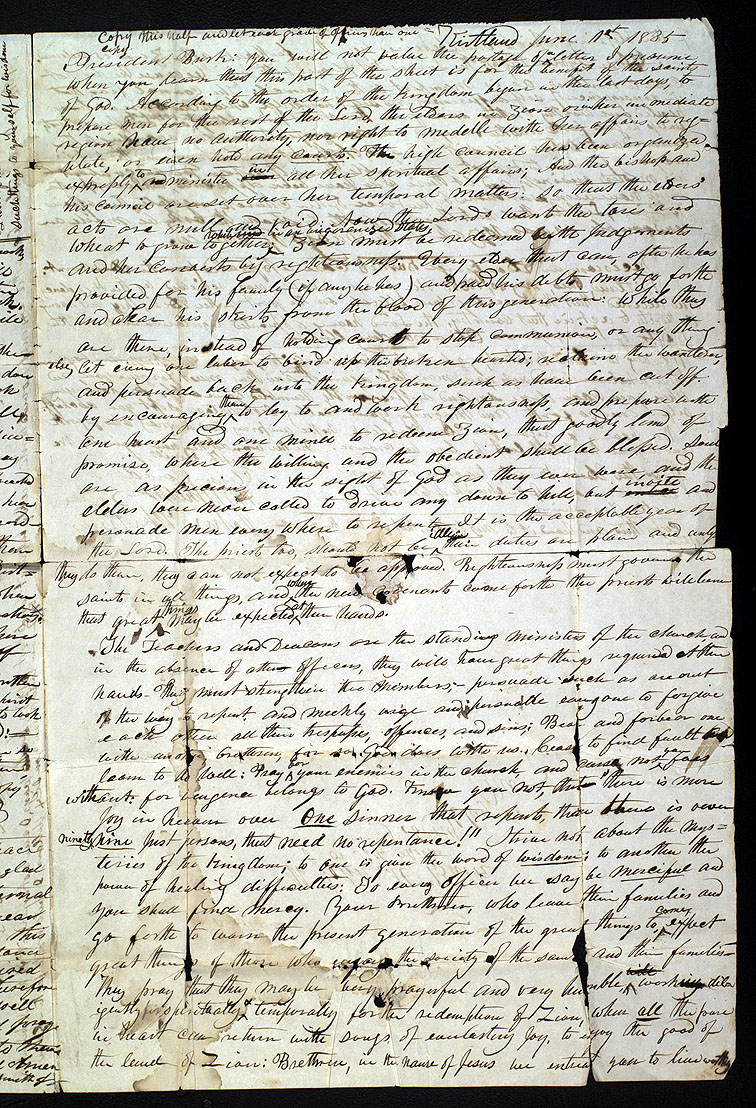 Copy this half and let each grade of officers than one =
Kirtland June 1st 1835
copy
President Burk: You will not value the postage of a letter I presume
when you learn that this part of the sheet is for the benefit of the Saints
of God. According to the order of the kingdom begun in the last days, to
prepare men for the rest of the Lord the elders in Zion or in her immediate
region have no authority, nor right to meddle with her affairs to reg-
ulate, or even hold any courts. The high council has been organized
expressly to administer in all her spiritual affairs; And the bishop and
his council are set over her temporal matters: so thus the elders
acts are null and void: Now the Lords wants the tare and
wheat to grow together; Zion must be redeemed with judgements
and her converts by righteousness. Every elder that can, after he has
provided for his family (if any he has) and paid his debts must go forth
and clear his skirts from the blood of this generation. While they
are there, instead of holding courts to stop communion, or any thing
else, let every one labor to bind up the broken hearted; reclaim the wanderer,
and persuade back into the kingdom such as have been cut off
by encouraging them to lay to and work righteousness and prepare with
one heart and one mind to redeem Zion, that goodly land of
promise, where the willing and the obedient shall be blessed. Souls
are as precious in the sight of God as they ever were and the
elders were never called to drive any down to hell, but invite and
persuade men every where to repent. It is the acceptable year of
the Lord. The priests too, should not be idle: their duties are plain and unless
they do them, they can not expect to be approved. Righteousness must govern the
saints in all things and when the new covenants come forth the priests will learn
that great things may be expected at their hands.
The Teachers and Deacons are the standing ministers of the church and
in the absence of other officers, they will have great things required at their
hands. They must strengthen the members; persuade such as are out
of the way to repent. and meekly urge and persuade everyone to forgive
each other all their trespasses, offences, and sins; Bear and forbear one
with another brethren, for so God does with us. Cease to find fault
learn to do well: Pray for your enemies in the church and curse not your foes
without: for vengence belongs to God. Know you not that "there is more
joy in heaven over One sinner that repents, than there is over
ninety nine just persons, that need no repentance!!" Strive not about the mys-
teries of the kingdom; to one is given the word of wisdom; to another the
power of healing difficulties: To every officer we say be merciful and
you shall find mercy. Your brethren, who leave their families and
go forth to warn the present generation of the great things to come, expect
great things of those who enjoy the society of the saints and their families—
They pray that they may be very prayerful and very humble, working dilli
gently spiritually & temporally for the redemption of Zion, when all the pure
in heart can return with songs of everlasting joy, to enjoy the good of
the land of Zion: Brethren, in the name of Jesus we entreat you to live worthy